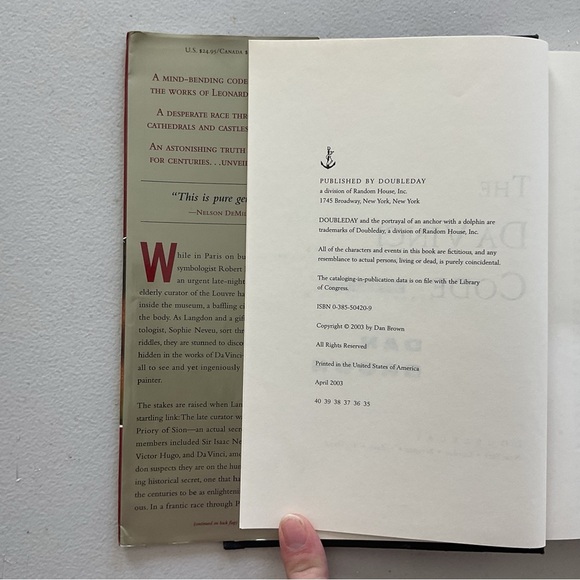 U.S. $24.95/CANADA $
A MIND-BENDING CODE
THE WORKS OF LEONARD
A DESPERATE RACE THR
CATHEDRALS AND CASTLES
AN ASTONISHING TRUTH
FOR CENTURIES. . .UNVEIL
"This is pure gen
—NELSON DEMI
While in Paris on bu
symbologist Robert
an urgent late-night
elderly curator of the Louvre ha
inside the museum, a baffling ci
the body. As Langdon and a gif
tologist, Sophie Neveu, sort thr
riddles, they are stunned to disco
hidden in the works of Da Vinci
all to see and yet ingeniously
painter.
The stakes are raised when Lan
startling link: The late curator w
Priory of Sion—an actual secr
members included Sir Isaac Ne
Victor Hugo, and Da Vinci, amo
don suspects they are on the hun
ing historical secret, one that ha
the centuries to be as enlightenin
ous. In a frantic race through P
(continued on back flap)
PUBLISHED BY DOUBLEDAY
a division of Random House, Inc.
1745 Broadway, New York, New York
DOUBLEDAY and the portrayal of an anchor with a dolphin are
trademarks of Doubleday, a division of Random House, Inc.
All of the characters and events in this book are fictitious, and any
resemblance to actual persons, living or dead, is purely coincidental.
The cataloging-in-publication data is on file with the Library
of Congress.
ISBN 0-385-50420-9
Copyright © 2003 by Dan Brown
All Rights Reserved
Printed in the United States of America
April 2003
40 39 38 37 36 35
THE
DA VINCI
CODE
DAN
BROWN